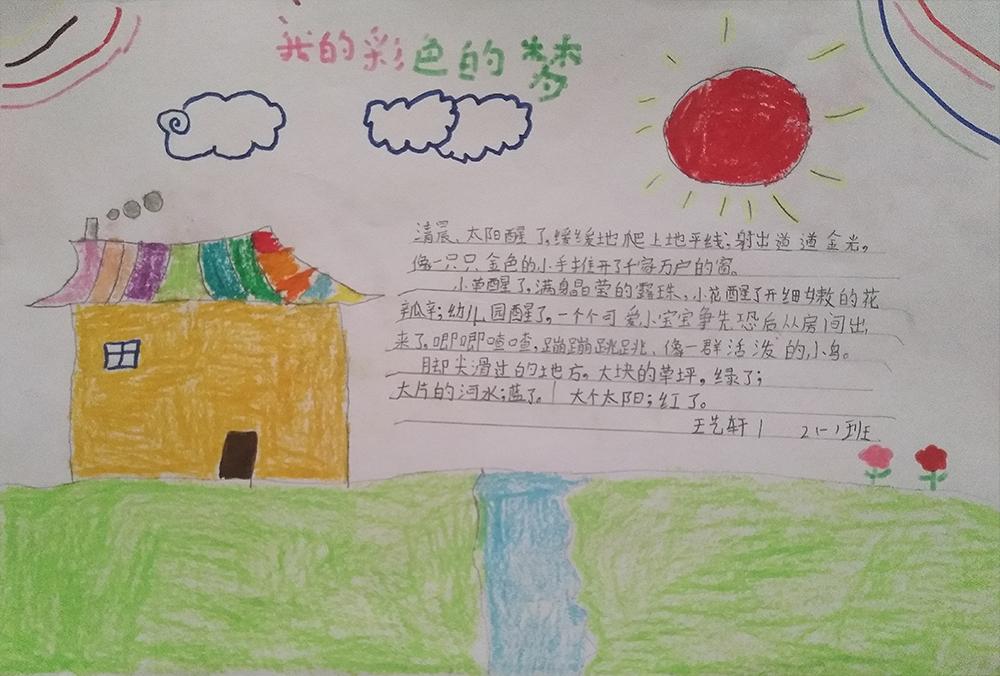 我的彩色的梦
清晨、太阳醒了,缓缓地爬上地平线,射出道道金光。
像一只只金色的小手推开了千家万户的窗。
小草醒了,满身晶莹的露珠、小花醒了开细嫩的花
辛瓜辛;幼儿园醒了,一个个可爱小宝宝争先恐后从房间出
来了,唧唧喳喳,蹦蹦跳跳、像一群活泼的小鸟。
脚尖滑过的地方,大块的草坪,绿了;
大片的河水;蓝了。大个太阳;红了。
王艺轩 2(一)班